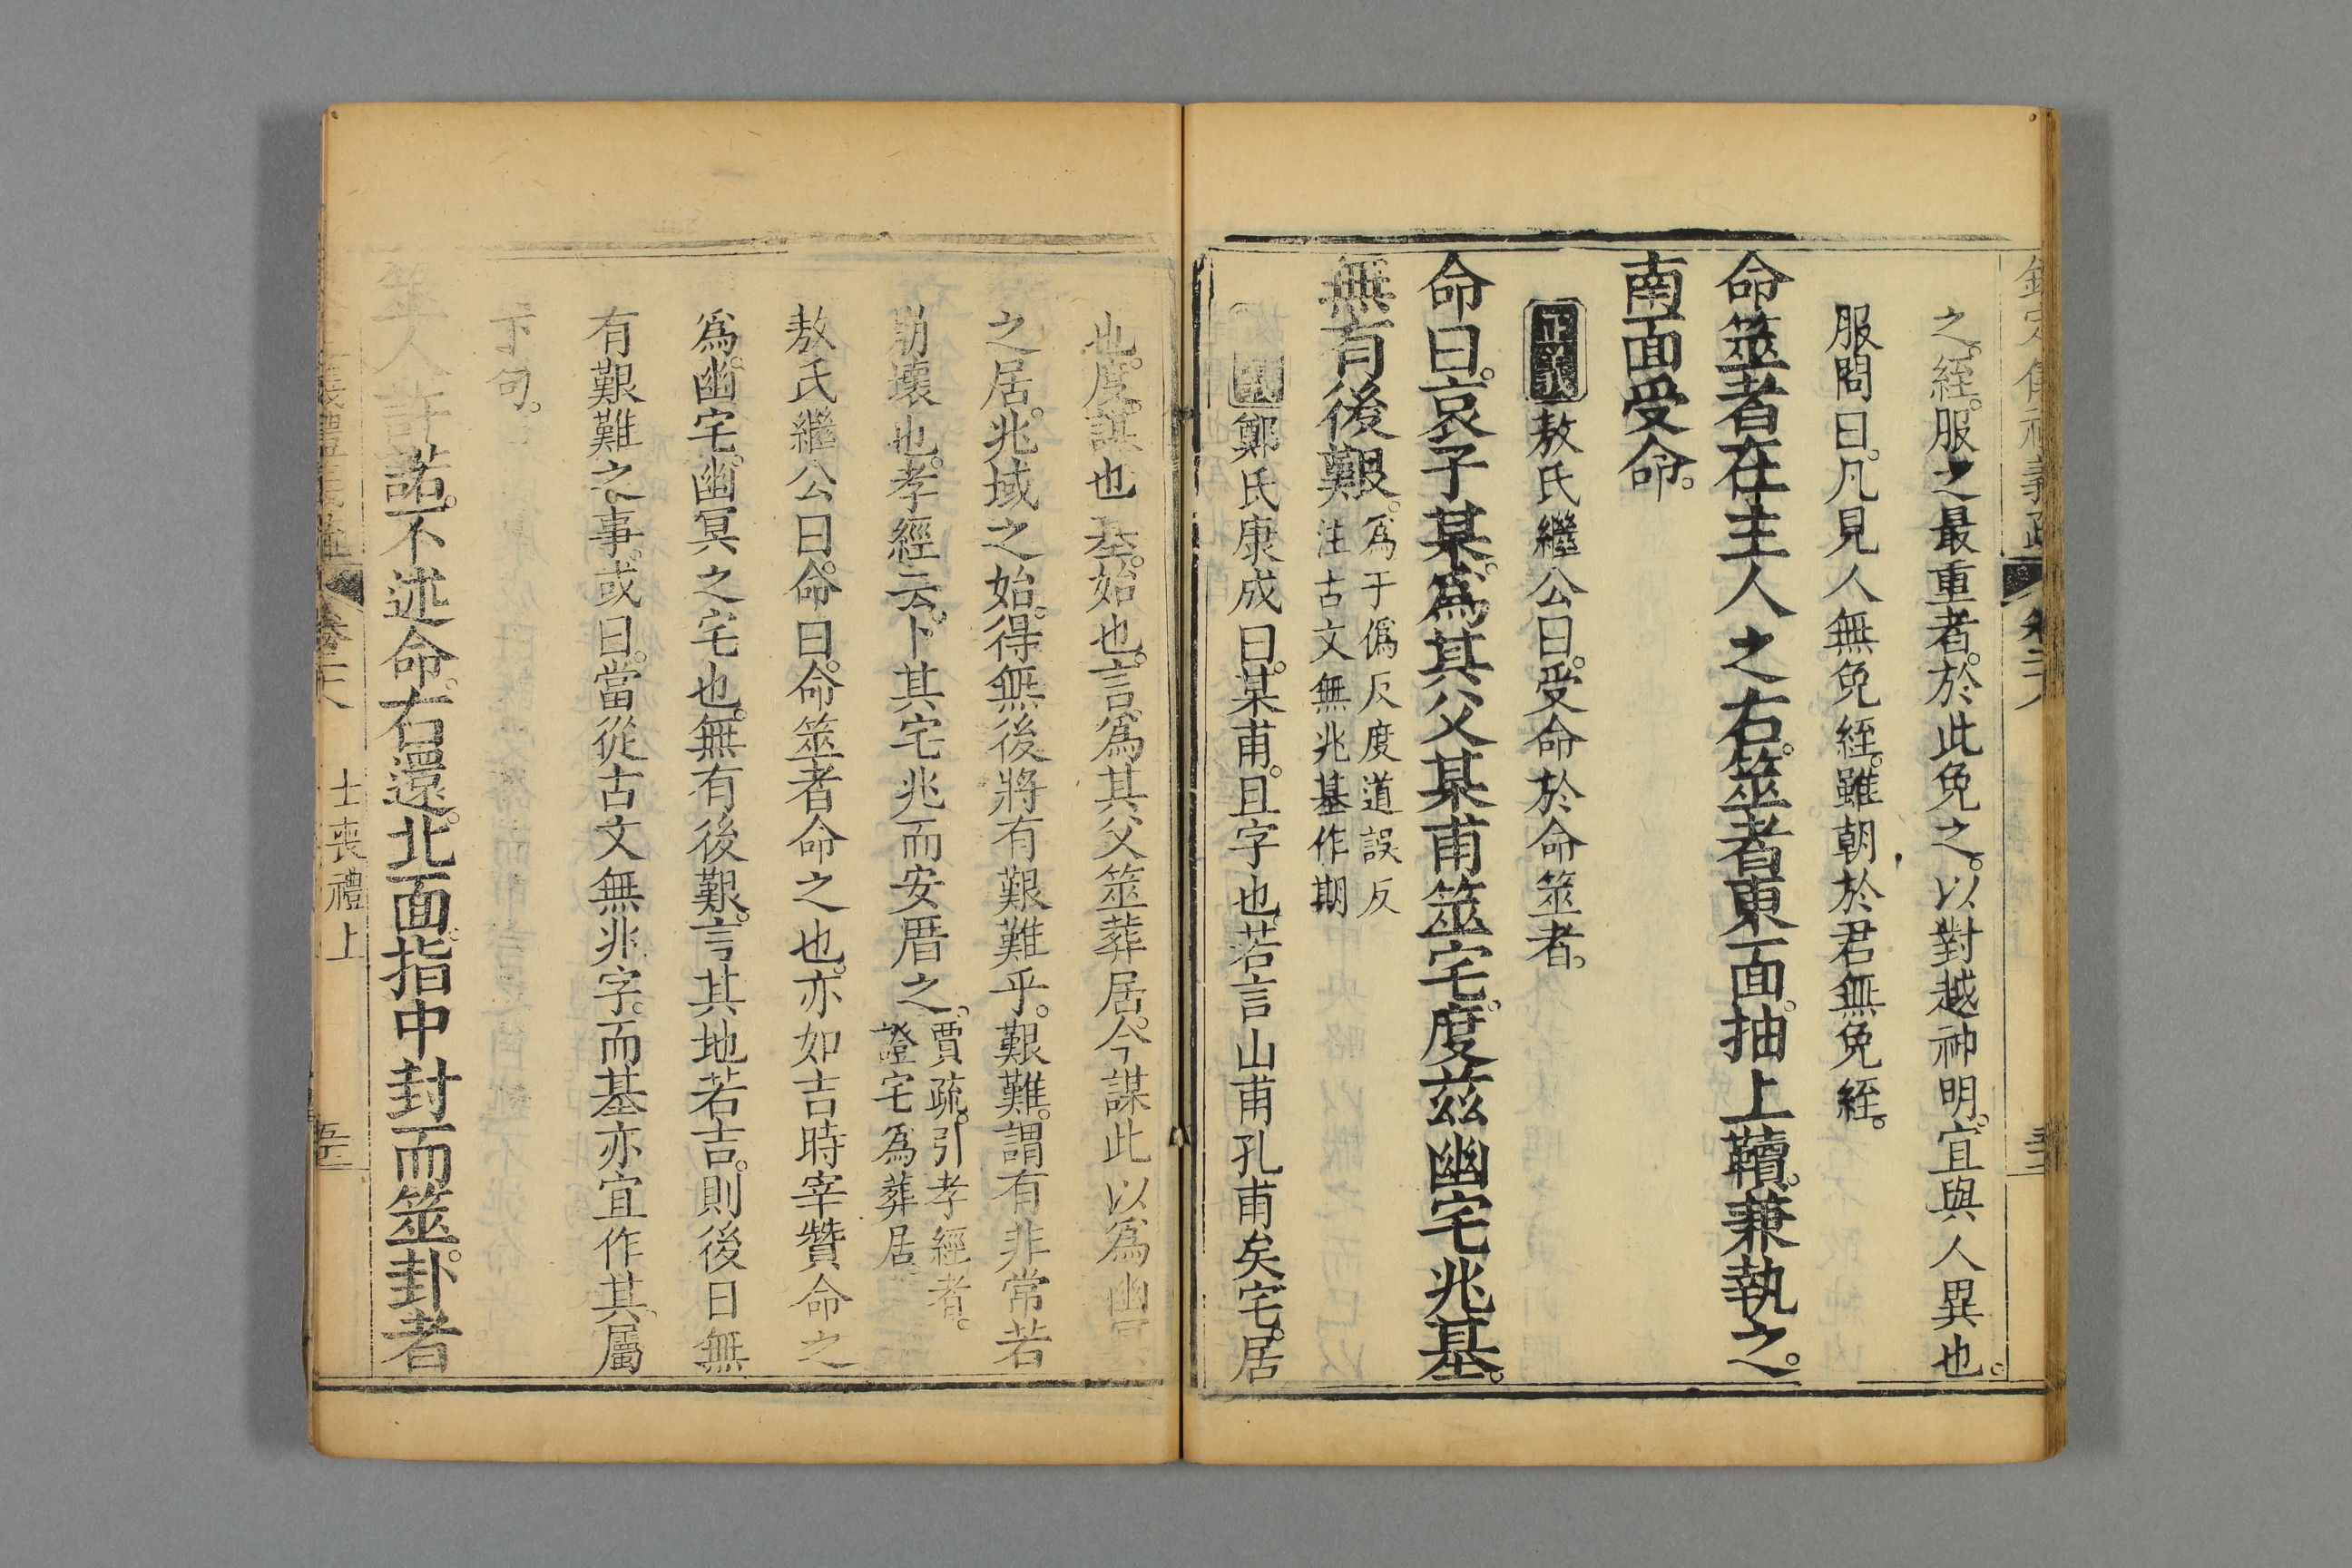 之絰服之最重者。於此免之。以對越神明。宜與人異也。
服問曰。凡見人無免絰。雖朝於君無免絰。
命筮者在主人之右。筮者東面。抽上韇。兼執之。
南面受命。
正義 敖氏繼公曰。受命於命筮者。
命曰。哀子某。爲其父某甫筮宅。度茲幽宅兆基。
無有後艱。爲于僞反度道誤反
注古文無兆基作期
鄭氏康成曰。某甫。且字也。若言山甫孔甫矣。宅。居
也。度。謀也。基。始也。言爲其父筮葬居。今謀此以爲幽冥
之居。兆域之始。得無後將有艱難乎。艱難。謂有非常若
崩壞也。孝經云。卜其宅兆而安厝之。賈疏。引孝經者。
證宅爲葬居
敖氏繼公曰。命曰。命筮者命之也。亦如吉時宰贊命之
爲。幽宅。幽冥之宅也。無有後艱。言其地若吉。則後日無
有艱難之事。或曰。當從古文無兆字。而基亦宜作其。屬
下句。
筮人許諾。不述命。右還。北面。指中封而筮。卦者
卷二十八 士喪禮上